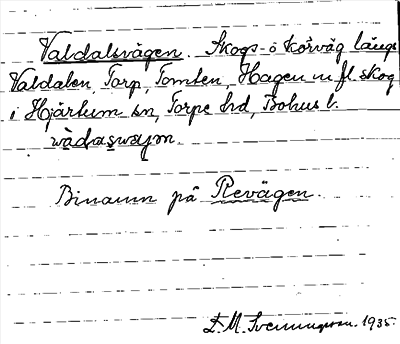 Valdalsvägen. Skogs- o körväg längs
Valdalen, Torp, Tomten, Hagen m fl. skog
i Hjärtum sn, Torpe hd, Bohus l.
Binamn på Revägen.
D. M. Svenungsson. 1935.